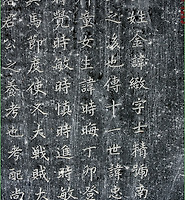 姓金諱緻字士精號南
之後也傳十一世諱忠
外
童女生諱時晦丁卯登
有贊時敏時愼時進時敏
兵馬節度使又大戰賊大
君公之養考也考配尚